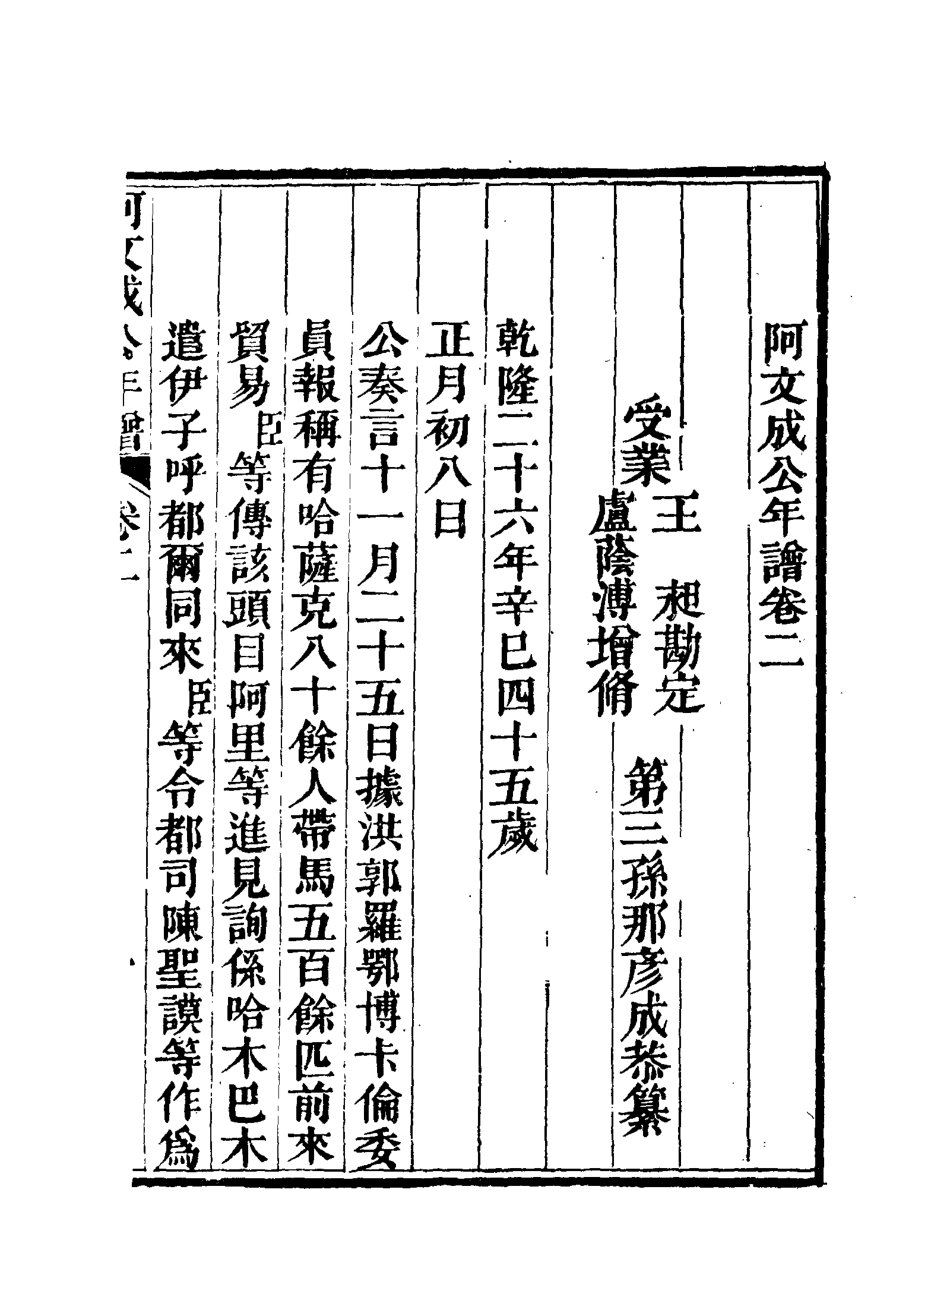 阿文成公年譜卷二
第三孫那彥成恭纂
受業
王　昶勘定
盧蔭溥增脩
乾隆二十六年辛巳四十五歲
正月初八日
公奏言十一月二十五日據洪郭羅鄂博卡倫委
員報稱有哈薩克八十餘人帶馬五百餘匹前來
貿易臣等傳該頭目阿里等進見詢係哈木巴木
遣伊子呼都爾同來臣等令都司陳聖謨等作爲
阿文成公年譜　卷二